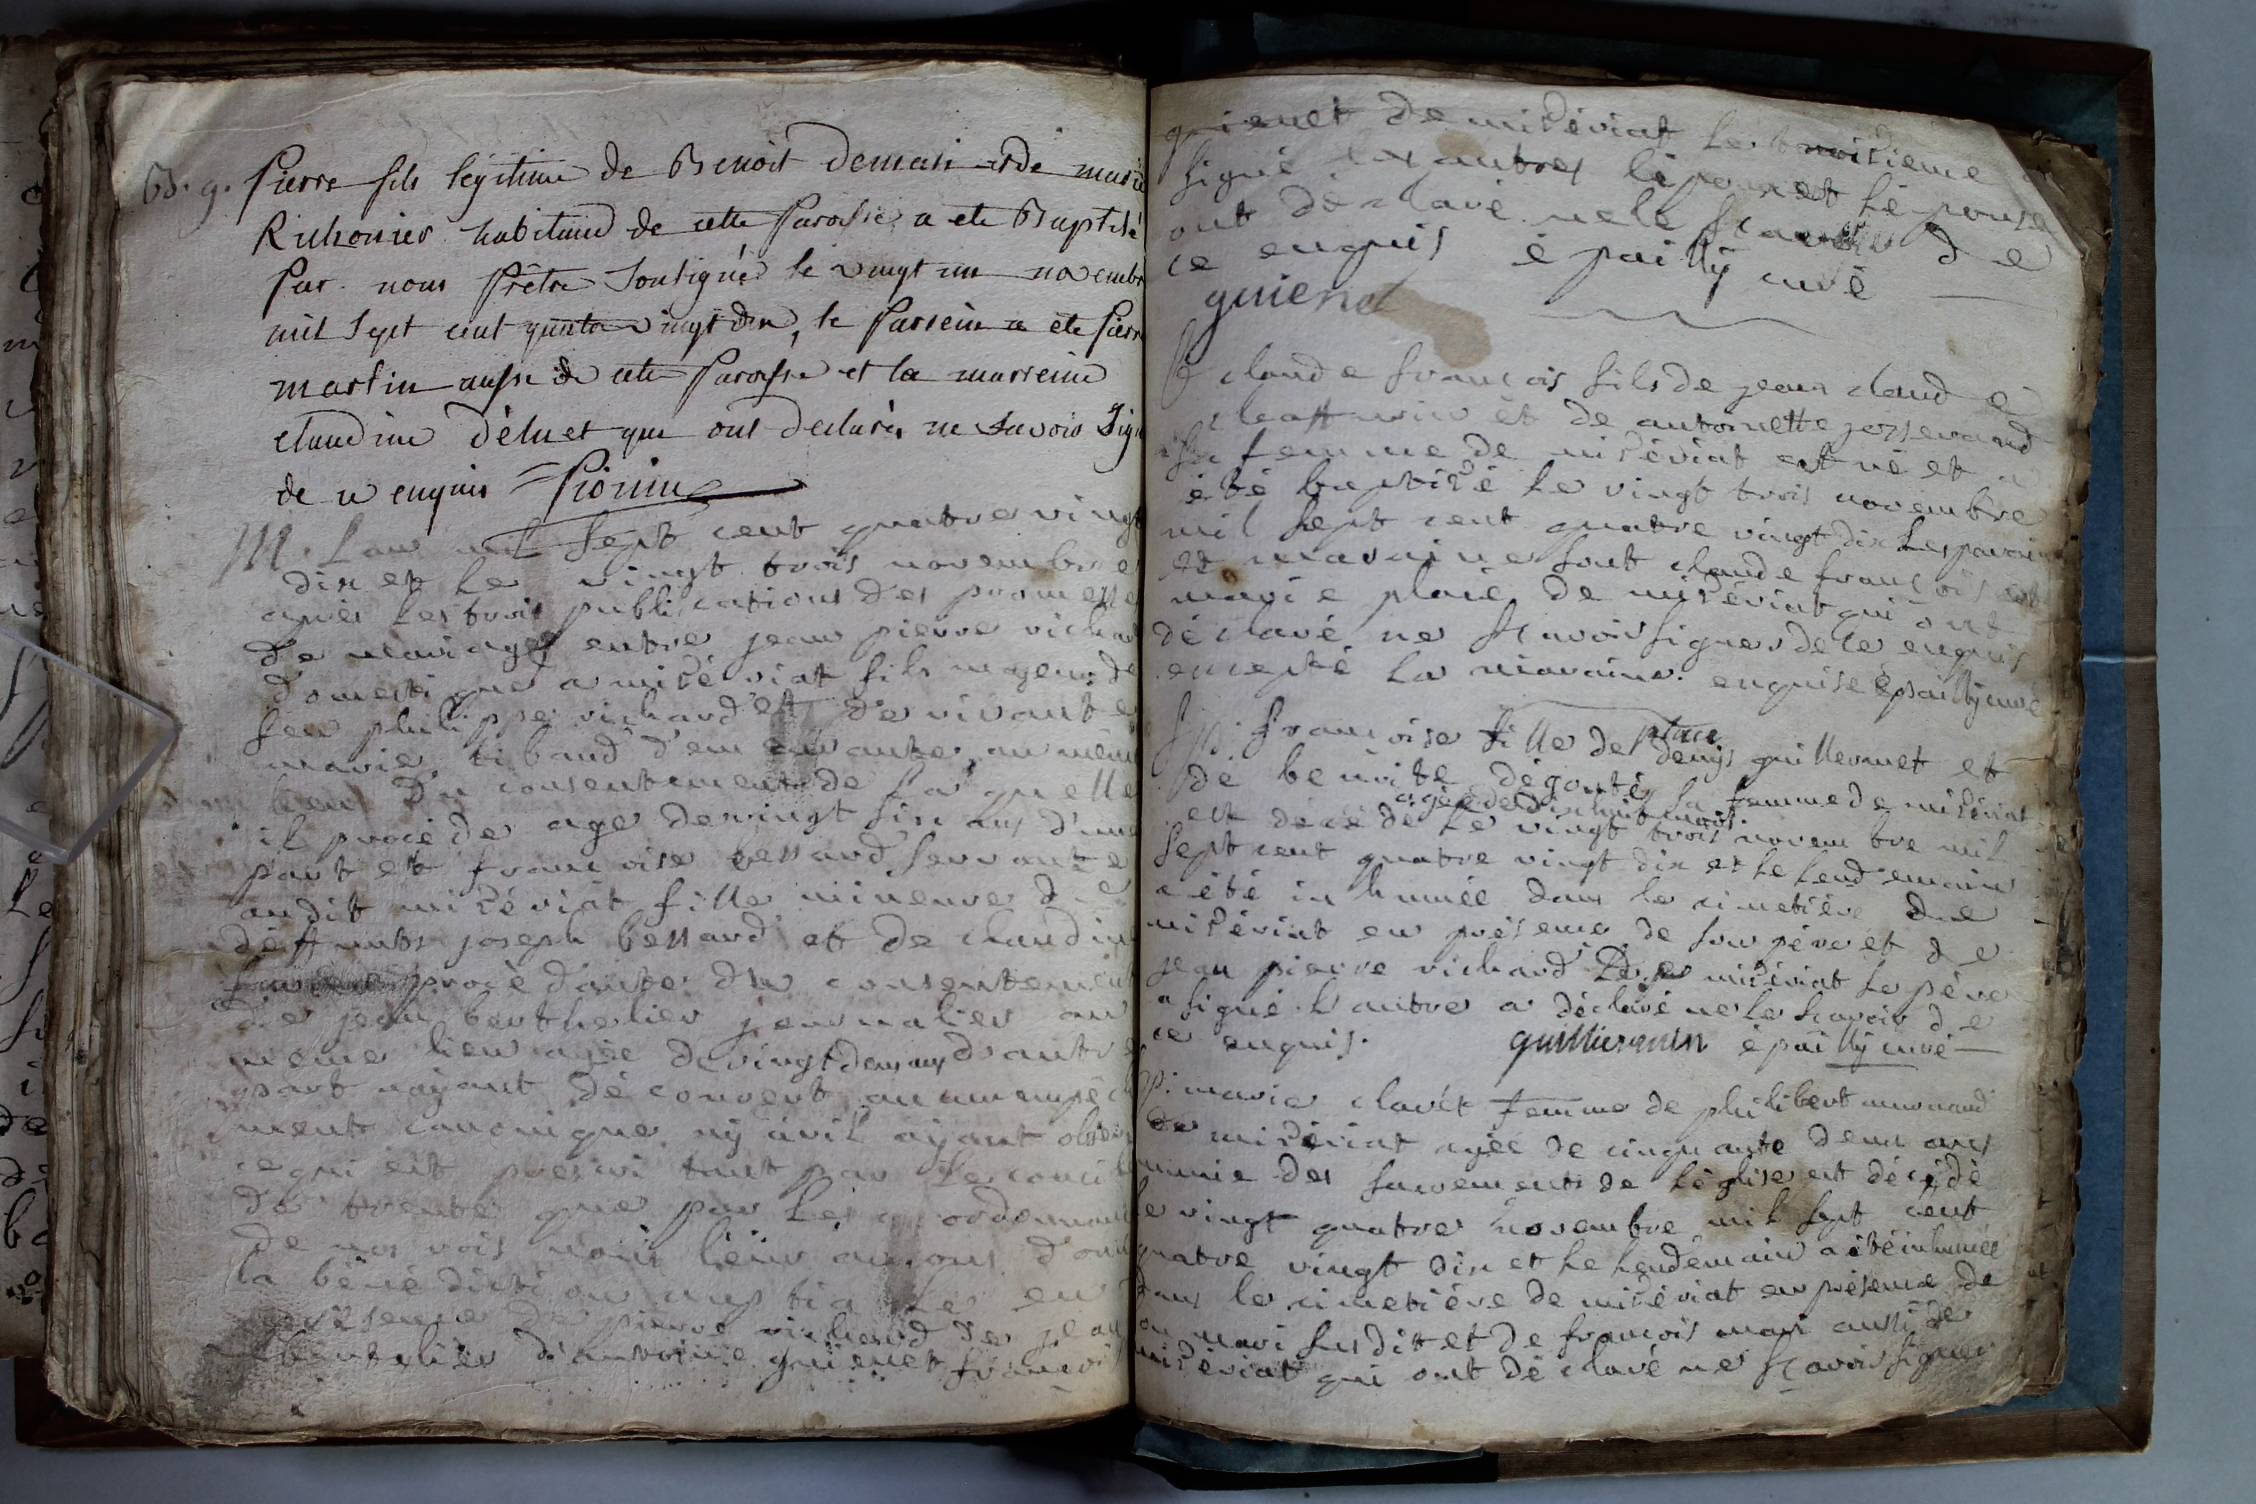 B. g. Pierre fils legitime de Benoit demasi et de marie
Richonier habitant de cette Paroisse a ete Baptisé
Par nous Prêtre Soutigné le vingt un novembre
mil Sept cent quatre vingt dix, le Parrein a ete Pierre
martin aussi de cete Paroisse et la marreine
claudine déluet qui ont declarés ne Savoir Sign
de ce enquis
M. Lan mil Sept cent quatre vingt
dix et le vingt trois novembre
après les trois publications des promesses
de mariage entre jean pierre richard
domestique a misériat fils mageur de
feu philippe richard et de vivante
marie tibaud demeurante au même
lieu du consentement de laquelle
il procède age de vingt six ans d'une
part et francoise bessard servante
audit misériat fille mineure de
déffunts joseph bessard et de claudine
procédante du consentement
de jean berthelier journalier au
meme lieu agée de vingt deux ans d'autre
part nayant découvert aucun empêch
ment canonique ny civil ayant observé
ce qui est prescri tant par le concile
de trente que par les ordonnances
de nos rois nous leur avons donné
la bénédiction nuptiale en
présence de pierre richard de jean
berthelier d'antoine guienet francois
guienet de misériat le troisieme a
signé les autres lépoux et lépouse
ont déclaré ne le sçavoir de
ce enquis épailly curé
guienet
B claude francois fils de jean claude
et de antoinette josserand
sa femme de misériat est né et a
été baptisé le vingt trois novembre
mil sept cent quatre vingt dix les parain
et maraine sont claude francois et
marie place de misériat qui ont
déclaré ne sçavoir signer de ce enquis
excepté la maraine. enquise épailly curé
place
Sp. francoise fille de denys guillermet et
de benoite dégoutes sa femme de misériat
agée de dix huit mois
est décédé le vingt trois novembre mil
sept cent quatre vingt dix et le lendemain
a été inhumée dans le cimetière de
misériat en présence de son père et de
jean pierre richard de misériat le père
a signé l'autre a déclaré ne le sçavoir de
ce enquis. guillierminn épailly curé
Sp. marie claret femme de philibert
de misériat agée de cinquante deux ans
munie des sacrements de l'église est décédé
le vingt quatre novembre mil sept cent
quatre vingt dix et le lendemain a été inhumée
dans le cimetière de misériat en présence de
son mari susdit et de francois mari aussi de
misériat qui ont déclaré ne sçavoir signer